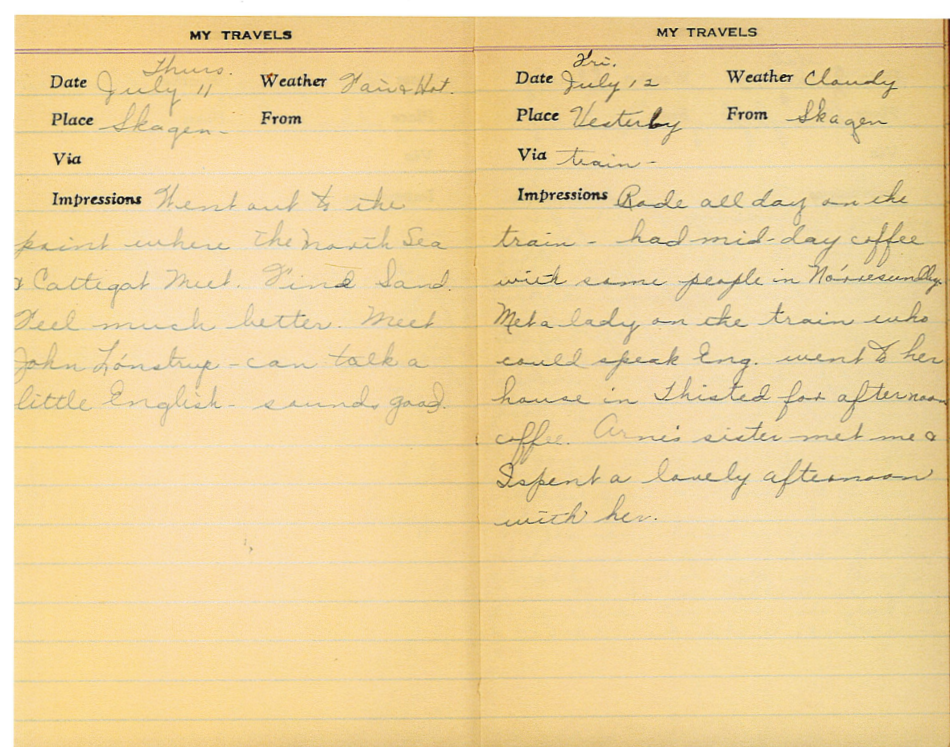 MY TRAVELS
Thurs.
Date July 11 Weather Fair & Hot.
Place Skagen - From
Via
Impressions Went out to the
point where the North Sea
& Cattegat Meet. Find Sand.
Feel much better. Meet
John Lónstrup - can talk a
little English - sounds good.
MY TRAVELS
Fri.
Date July 12 Weather Cloudy
Place Vesterby From Skagen
Via train -
Impressions Rode all day on the
train - had mid-day coffee
with some people in Nórresundby.
Met a lady on the train who
could speak Eng. went to her
house in Thisted for afternoon
coffee. Arne's sister met me &
I spent a lovely afternoon
with her.